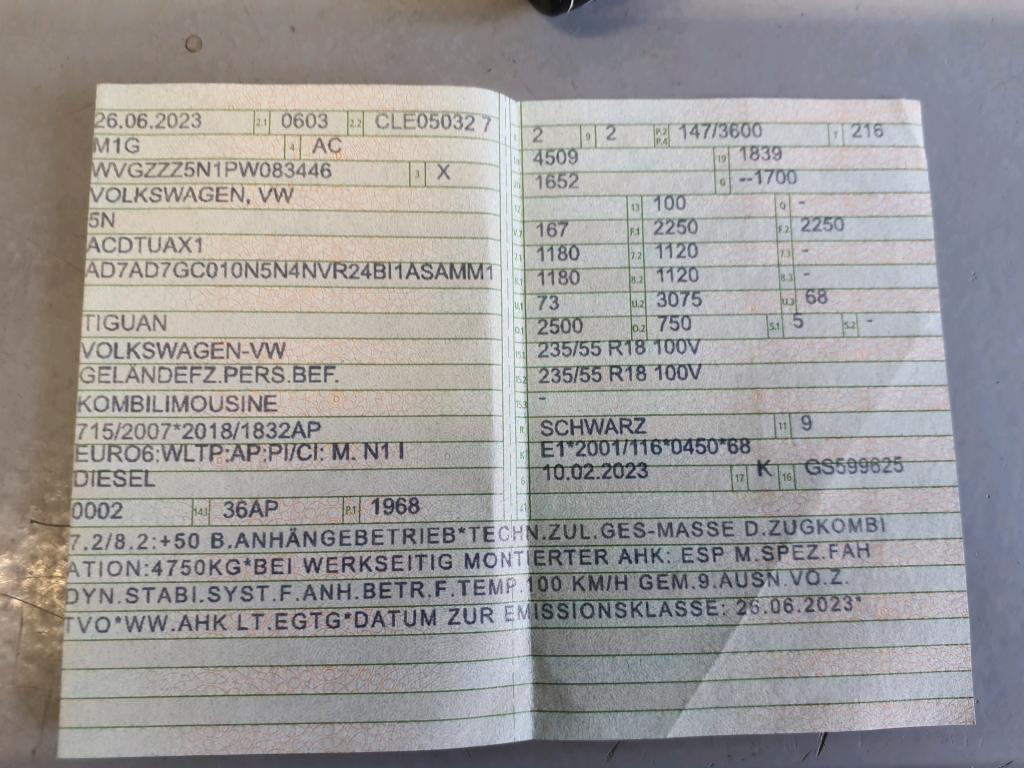 26.06.2023 2.1 0603 2.2 CLE05032 7
M1G 4 AC
WVGZZZ5N1PW083446 3 X
VOLKSWAGEN, VW
5N
ACDTUAX1
AD7AD7GC010N5N4NVR24BI1ASAMM1
TIGUAN
VOLKSWAGEN-VW
GELÄNDEFZ.PERS.BEF.
KOMBILIMOUSINE
715/2007*2018/1832AP
EURO6:WLTP:AP:PI/CI: M. N1 I
DIESEL
0002 14.1 36AP P.1 1968
2 9 2 P.2 P.4 147/3600 T 216
4509 19 1839
1652 G --1700
12 13 100 Q -
V.7 167 F.1 2250 F.2 2250
7.1 1180 7.2 1120 7.3 -
8.1 1180 8.2 1120 8.3 -
U.1 73 U.2 3075 U.3 68
O.1 2500 O.2 750 S.1 5 S.2 -
15.1 235/55 R18 100V
15.2 235/55 R18 100V
15.3 -
R SCHWARZ 11 9
K E1*2001/116*0450*68
6 10.02.2023 17 K 16 GS599625
21
7.2/8.2:+50 B.ANHÄNGEBETRIEB*TECHN.ZUL.GES-MASSE D.ZUGKOMBI
ATION:4750KG*BEI WERKSEITIG MONTIERTER AHK: ESP M.SPEZ.FAH
DYN.STABI.SYST.F.ANH.BETR.F.TEMP.100 KM/H GEM.9.AUSN.VO.Z.
TVO*WW.AHK LT.EGTG*DATUM ZUR EMISSIONSKLASSE: 26.06.2023*